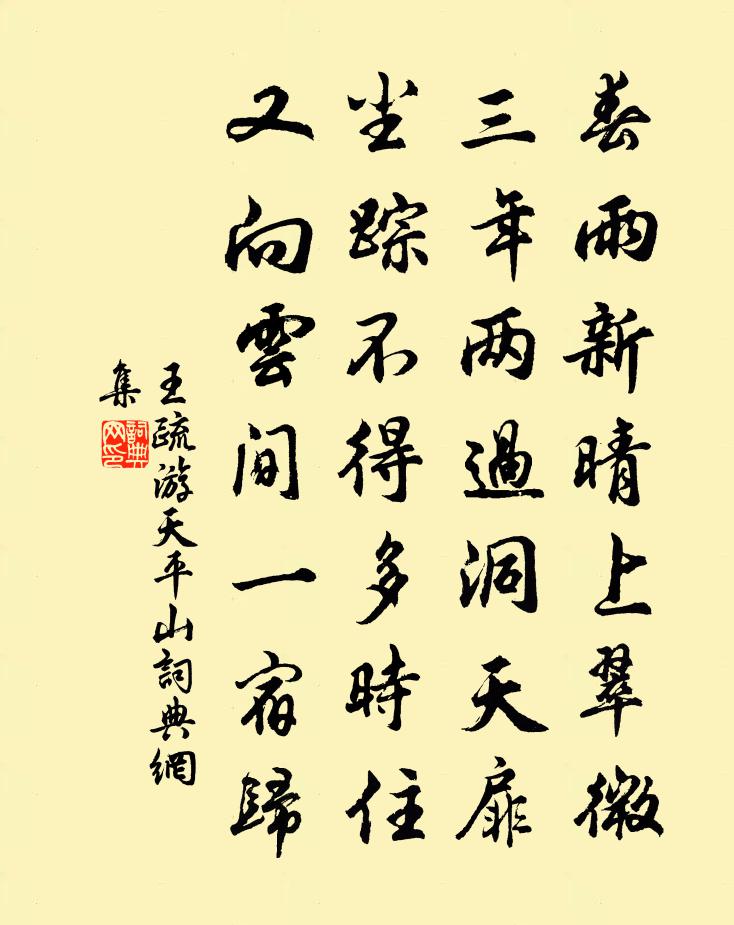 春雨新晴上翠微
三年两過洞天扉
尘踪不得多時住
又向雲间一宿歸
王疏游天平山詞典網
集
詞典
网印